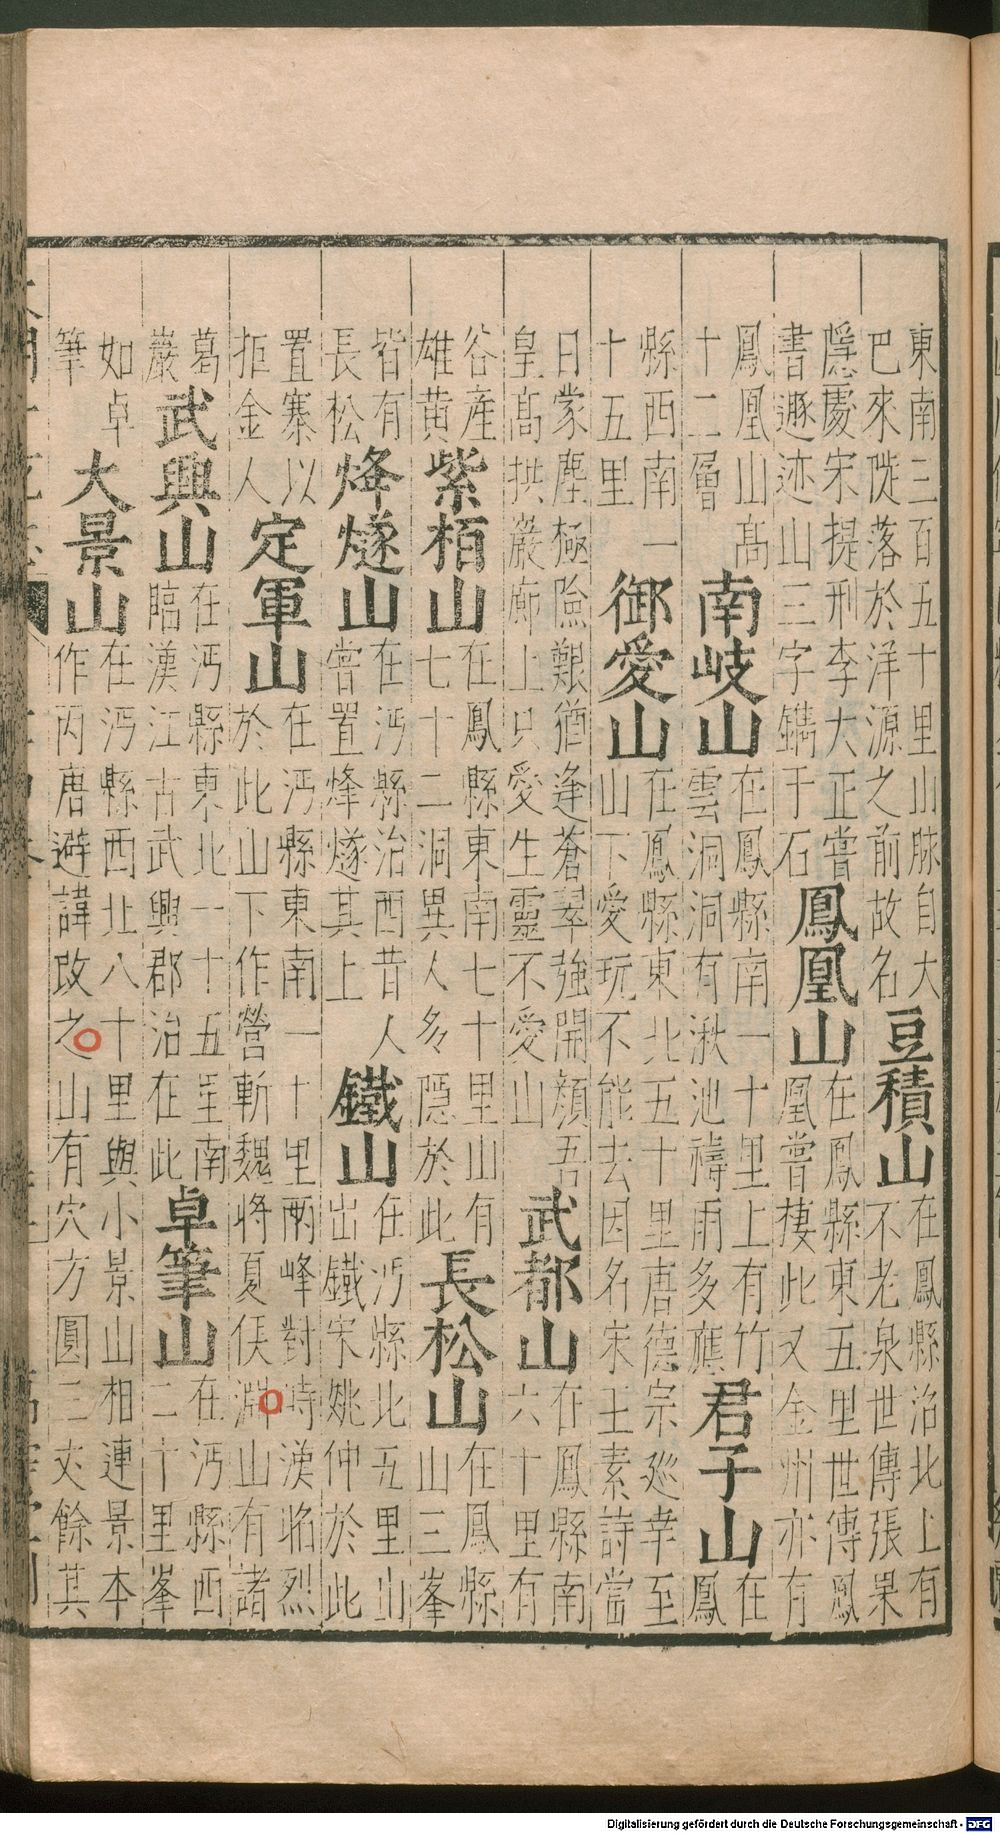 東南三百五十里山脉自大
巴來陡落於洋源之前故名
豆積山
在鳳縣治北上有
不老泉世傳張果
隱處宋提刑李大正嘗
書遯迹山三字鐫于石
鳳凰山
在鳳縣東五里世傳鳳
凰嘗棲此又金州亦有
鳳凰山高
十二層
南岐山
在鳳縣南一十里上有竹
雲洞洞有湫池禱雨多應
君子山
在
鳳
縣西南一
十五里
御愛山
在鳳縣東北五十里唐德宗廵幸至
山下愛玩不能去因名宋王素詩當
日蒙塵極險艱猶逢蒼翠強開顔吾
皇高拱巖廊上只愛生靈不愛山
武都山
在鳳縣南
六十里有
谷産
雄黄
紫栢山
在鳳縣東南七十里山有
七十二洞異人多隱於此
長松山
在鳳縣
山三峯
皆有
長松
烽燧山
在沔縣治西昔人
嘗置烽燧其上
鐵山
在沔縣北五里山
出鐵宋姚仲於此
置寨以
拒金人
定軍山
在沔縣東南一十里兩峰對峙漢昭烈
於此山下作營斬魏將夏侯淵山有諸
葛
巖
武興山
在沔縣東北一十五里南
臨漢江古武興郡治在此
卓筆山
在沔縣西
二十里峯
如卓
筆
大景山
在沔縣西北八十里與小景山相連景本
作丙唐避諱改之山有穴方圓二丈餘其
Digitalisierung gefördert durch die Deutsche Forschungsgemeinschaft - DFG